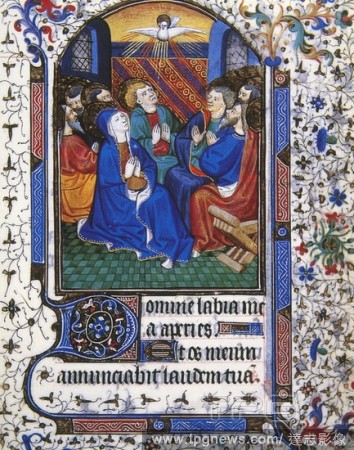 Domine labia me
a aperies.
Et os meum
annunciabit laudem tua.
www.tpgnews.com/ 達志影像